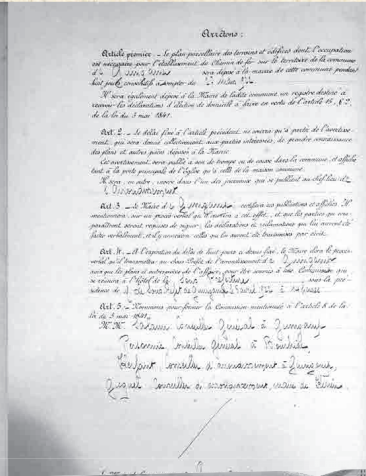 Arrêtons :
Article premier. — Le plan parcellaire des terrains et édifices dont l'occupation
est nécessaire pour l'établissement du Chemin de fer sur le territoire de la commune
d sera déposé à la mairie de cette commune pendant
huit jours consécutifs à compter du
Il sera également déposé à la Mairie de ladite commune un registre destiné à
recevoir les déclarations d'élection de domicile à faire en vertu de l'article 15, § 2,
de la loi du 3 mai 1841.
Art. 2. — Le délai fixé à l'article précédent ne courra qu'à partir de l'avertisse-
ment, qui sera donné collectivement aux parties intéressées, de prendre connaissance
des plans et autres pièces déposés à la Mairie.
Cet avertissement sera publié à son de trompe ou de caisse dans la commune, et affiché
tant à la porte principale de l'église qu'à celle de la maison commune.
Il sera, en outre, inséré dans l'un des journaux qui se publient au chef-lieu de
l'arrondissement
Art. 3. — Le Maire d certifiera ces publications et affiches. Il
mentionnera, sur un procès-verbal qu'il ouvrira à cet effet, et que les parties qui com-
paraîtront seront requises de signer, les déclarations et réclamations qui lui auront été
faites verbalement, et il y annexera celles qui lui auront été transmises par écrit.
Art. 4. — A l'expiration du délai de huit jours ci-dessus fixé, le Maire clora le procès-
verbal qu'il transmettra au Sous-Préfet de l'arrondissement d Guingamp
ainsi que les plans et autres pièces de l'affaire, pour être soumis à une Commission qui
se réunira à l'Hôtel de la Sous Préfecture sous la pré-
sidence de M. le Sous Préfet de Guingamp
Art. 5. — Sont nommés pour former la Commission mentionnée à l'article 8 de la
loi du 3 mai 1841,
M.M. Conseiller Général à Guingamp
Conseiller Général à
Conseiller d'arrondissement à Guingamp
Conseiller d'arrondissement, maire de